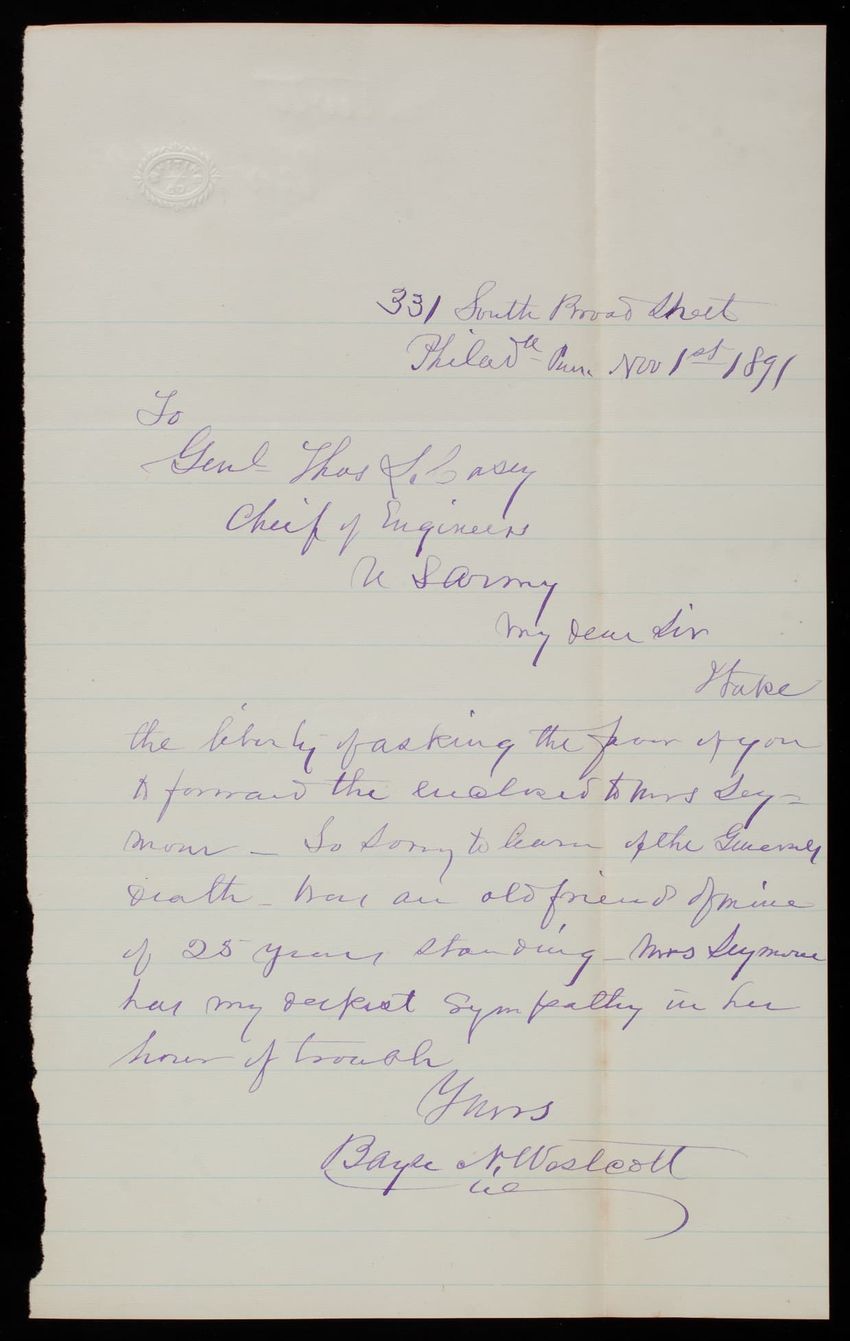 331 South Broad Street
Philad^(a) Penn. Nov 1st 1891
To
Genl Thos L. Casey
Cheif of Engineers
U S Army
My dear Sir
I take
the liberty of asking the favor of you
to forward the enclosed to Mrs Sey=
mour _ So sorry to learn of the Generals
death _ was an old friend of mine
of 25 years standing _ Mrs Seymour
has my deepest sympathy in her
hour of trouble
Yours
N. Westcott